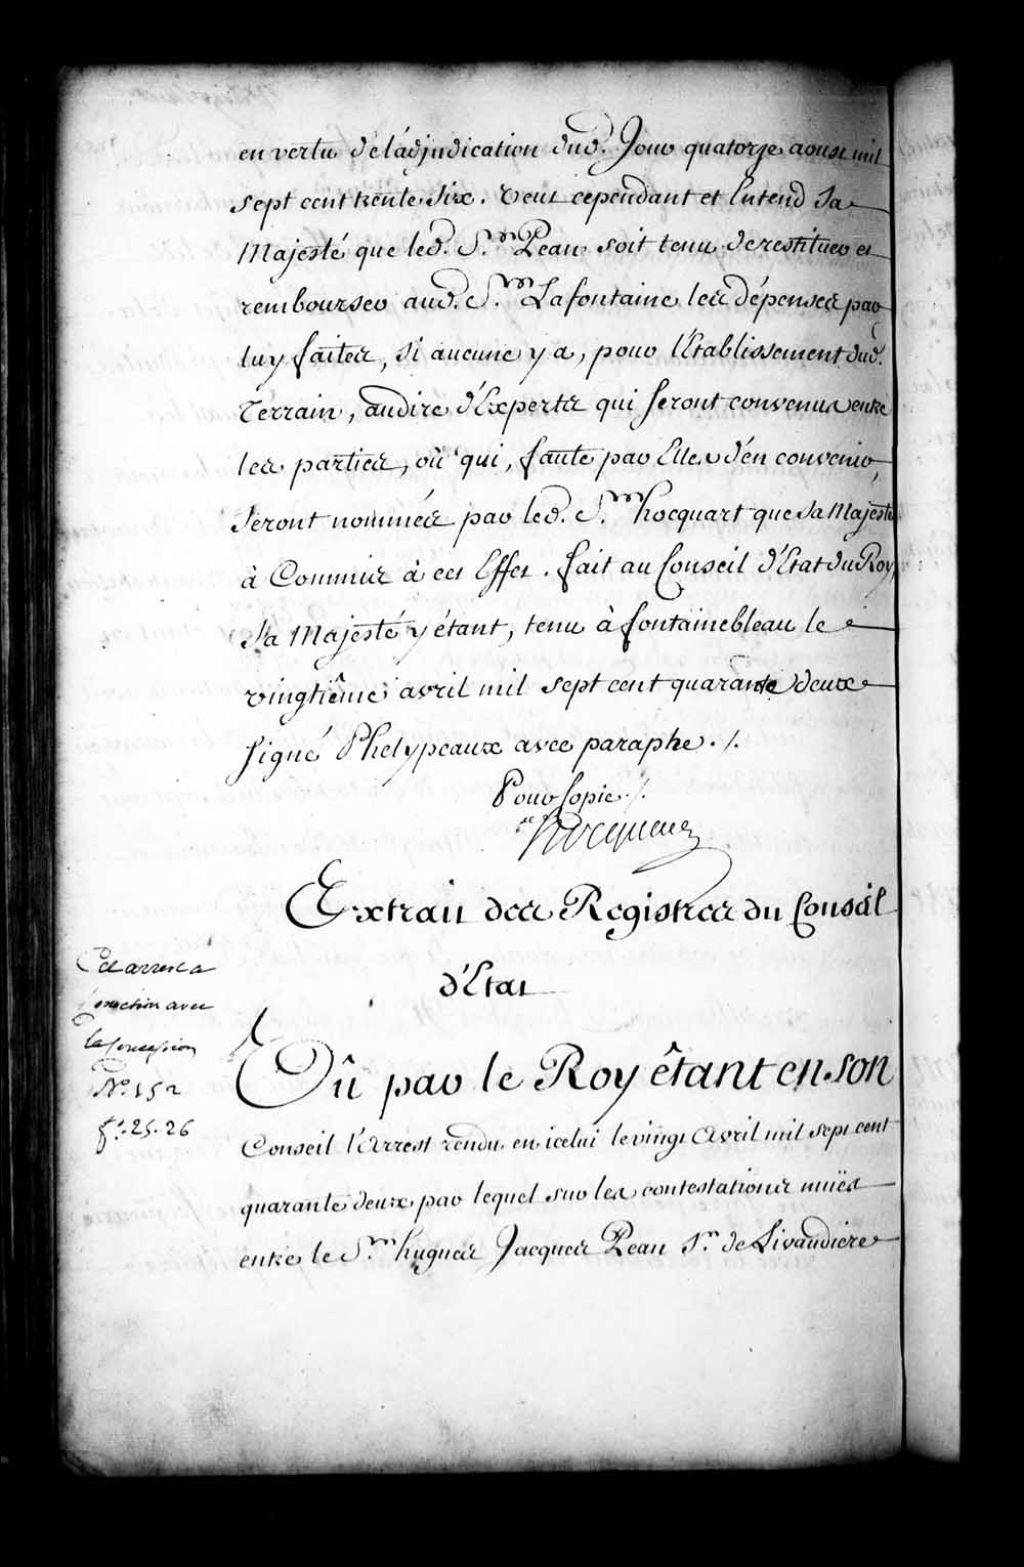 en vertu de l'adjudication dud. Jour quatorze aoust mil
sept cent trente six. Veut cependant et Entend Sa
Majesté que led. S.r Pean soit tenu de restituer et
rembourser aud. S.r Lafontaine les dépenses par
luy faites, si aucune y a, pour l'Etablissement dud.
Terrain, audire d'Experts qui seront convenus entre
les parties, où qui, faute par Elles d'en convenir,
Seront nommées par led. S.r hocquart que Sa Majesté
à Commis à cet Effet. fait au Conseil d'Etat du Roy,
Sa Majesté y étant, tenu à fontainebleau le
vingtiême avril mil sept cent quarante deux
signé Phelypeaux avec paraphe ./.
Pour Copie ./.
Hocquart
Extrait des Registres du Conseil
d'Etat
Cet arrest a
jonction avec
la Concession
N.o 152
f.o 25. 26
Vû par le Roy êtant en son
Conseil l'Arrest rendu en icelui le vingt Avril mil sept cent
quarante deux par lequel sur les contestations muës
entre le S.r hugues Jacques Pean S.r de Livaudiere